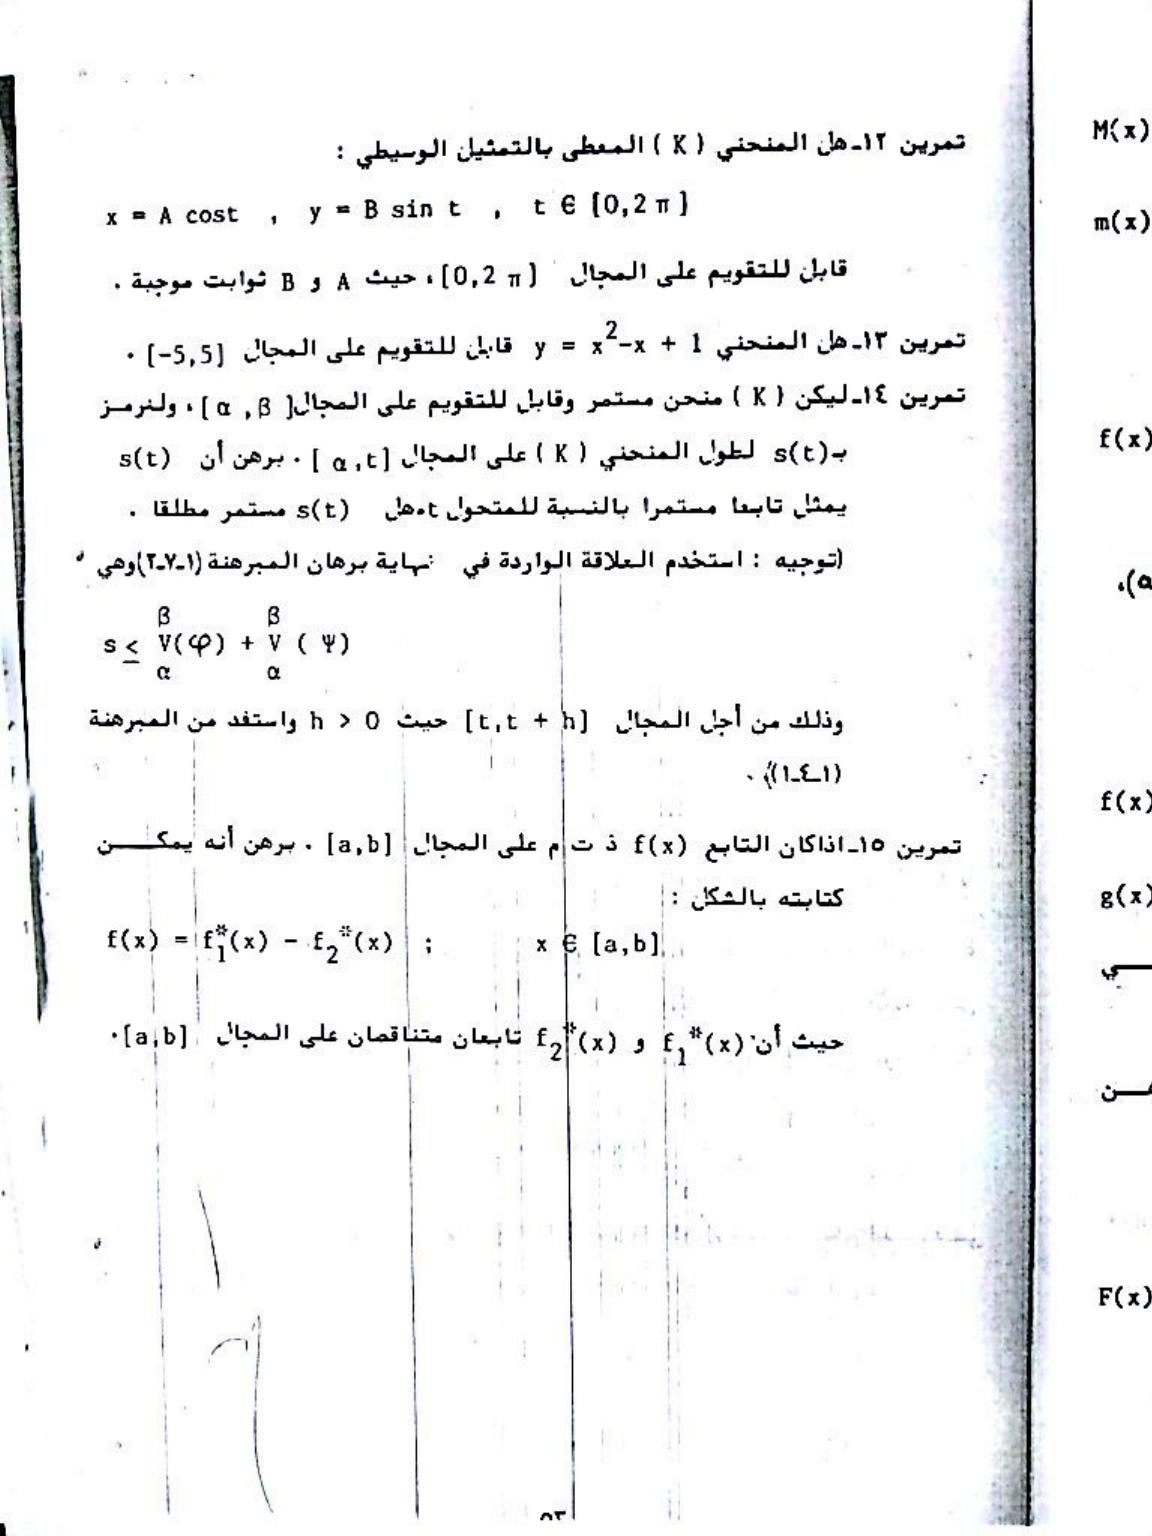 تمرين ١٢ـ هل المنحني ( K ) المعطى بالتمثيل الوسيطي :
x = A cost , y = B sin t , t ∈ [0,2 π]
قابل للتقويم على المجال [0,2 π] ، حيث A و B ثوابت موجبة .
تمرين ١٣ـ هل المنحني y = x²-x + 1 قابل للتقويم على المجال [-5,5] .
تمرين ١٤ـ ليكن ( K ) منحن مستمر وقابل للتقويم على المجال [α ,β] ، ولنرمـز
بـ s(t) لطول المنحني ( K ) على المجال [α,t] . برهن أن s(t)
يمثل تابعا مستمرا بالنسبة للمتحول t . هل s(t) مستمر مطلقا .
(توجيه : استخدم العلاقة الواردة في نهاية برهان المبرهنة (١ـ٧ـ٢) وهي
β β
s ≤ V(φ) + V ( Ψ)
α α
وذلك من أجل المجال [t,t + h] حيث h > 0 واستفد من المبرهنة
(١ـ٤ـ١)) .
تمرين ١٥ـ اذاكان التابع f(x) ذ ت م على المجال [a,b] . برهن أنه يمكــن
كتابته بالشكل :
f(x) = f₁*(x) - f₂*(x) ; x ∈ [a,b]
حيث أن f₁*(x) و f₂*(x) تابعان متناقصان على المجال [a,b] .
٥٣
M(x)
m(x)
f(x)
f(x)
g(x)
ـي
ـن
F(x)